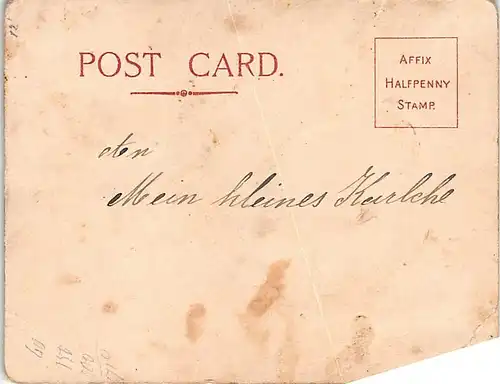 POST CARD.
AFFIX
HALFPENNY
STAMP.
Mein kleines Karlche